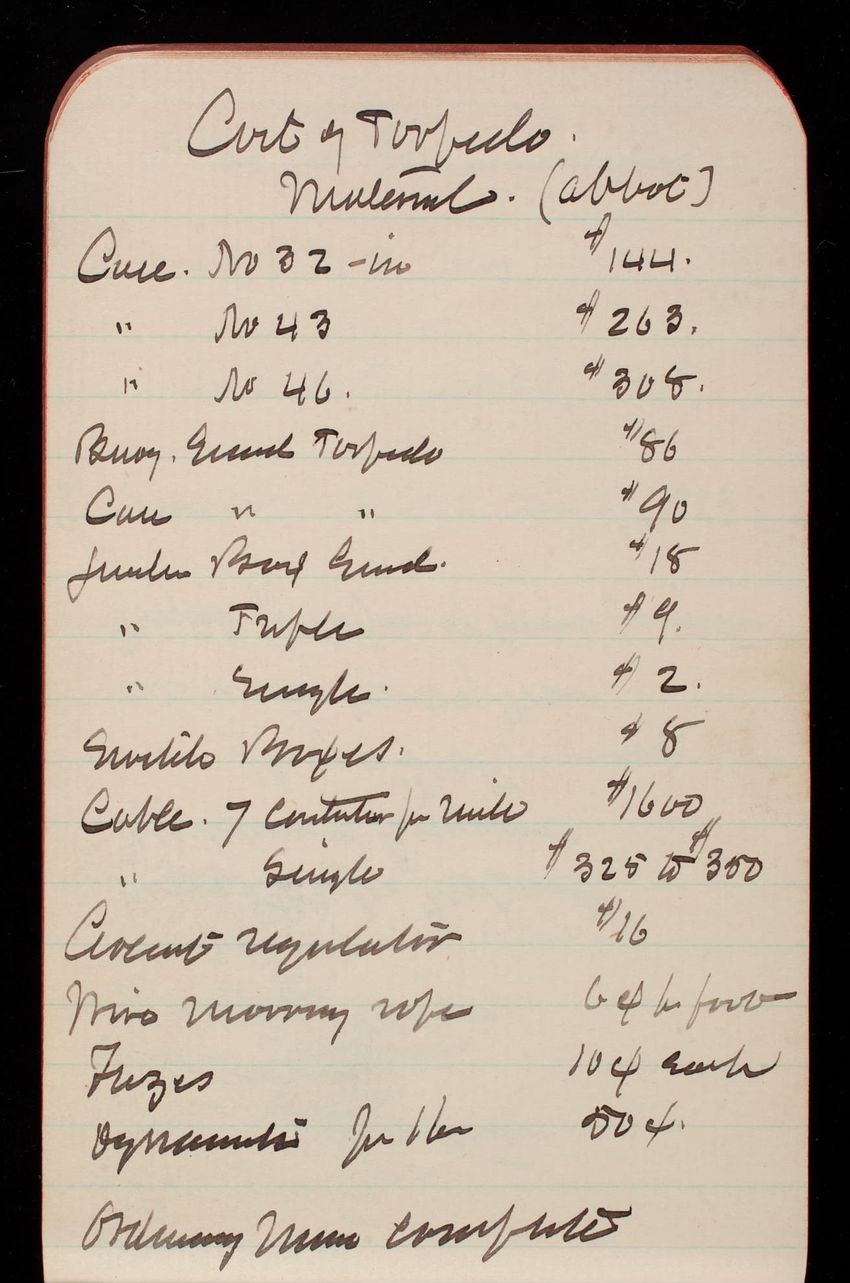 Cost of Torpedo.
Material. (Abbot)
Case. No 32-in $144.
" No 43 $263.
" No 46. $308.
Buoy. Ground Torpedo $86
Case " " $90
Junction Box Grand. $18
" Triple $9.
" Single. $2.
Boxes. $8
Cable. 7 conductor per mile $1600
" Single $325 to $350
Circuit regulator $16
Wire mooring rope 6¢ per foot
Fuzes 10¢ each
Dynamite per lb 50¢.
Ordinary Mine complete